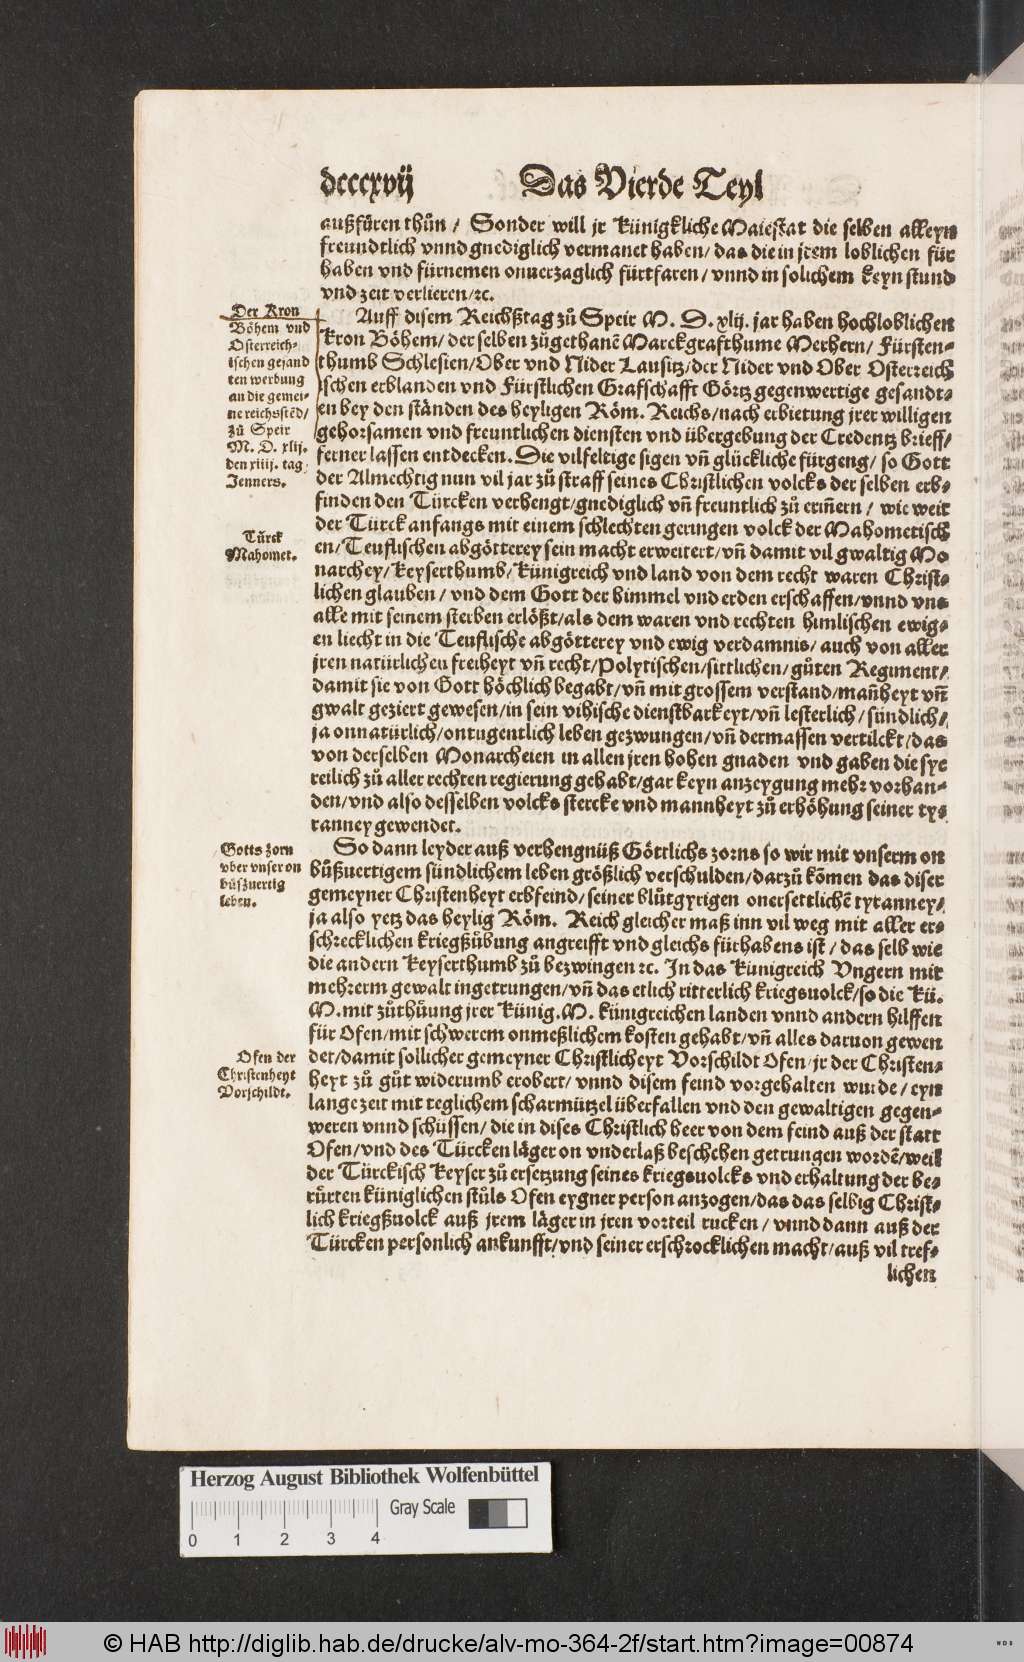 dcccxvij Das Vierde Teyl
außfüren thůn / Sonder will jr Künigkliche Maiestat die selben alleyn
freundtlich vnnd gnediglich vermanet haben / das die in jrem loblichen für
haben vnd fürnemen onuerzaglich fürtfaren / vnnd in solichem keyn stund
vnd zeit verlieren / ꝛc.
Der Kron
Böhem vnd
Osterreich-
ischen gesand
ten werbung
an die gemei-
ne reichsstēd /
zů Speir
M. D. xlij.
den xiiij. tag
Jenners.
Auff disem Reichßtag zů Speir M. D. xlij. jar haben hochloblichen
Kron Böhem / der selben zůgethanē Marckgrafthume Merhern / Fürsten-
thumb Schlesien / Ober vnd Nider Lausitz / der Nider vnd Ober Osterreich
ischen erblanden vnd Fürstlichen Grafschafft Görtz gegenwertige gesandt-
en bey den ständen des heyligen Röm. Reichs / nach erbietung jrer willigen
gehorsamen vnd freuntlichen diensten vnd übergebung der Credentz brieff /
ferner lassen entdecken. Die vilfeltige sigen vñ glückliche fürgeng / so Gott
der Almechtig nun vil jar zů straff seines Christlichen volcks der selben erb-
finden den Türcken verhengt / gnediglich vñ freuntlich zů eriñern / wie weit
der Türck anfangs mit einem schlechten geringen volck der Mahometisch
en / Teuflischen abgötterey sein macht erweitert / vñ damit vil gwaltig Mo
narchey / Keyserthumb / Künigreich vnd land von dem recht waren Christ-
lichen glauben / vnd dem Gott der himmel vnd erden erschaffen / vnnd vns
alle mit seinem sterben erlößt / als dem waren vnd rechten himlischen ewig-
en liecht in die Teuflische abgötterey vnd ewig verdamnis / auch von aller
jren natürlichen freiheyt vñ recht / Polytischen / sittlichen / gůten Regiment /
damit sie von Gott höchlich begabt / vñ mit grossem verstand / mañheyt vñ
gwalt geziert gewesen / in sein vihische dienstbarkeyt / vñ lesterlich / sündlich /
ja onnatürlich / ontugentlich leben gezwungen / vñ dermassen vertilckt / das
von derselben Monarcheien in allen jren hohen gnaden vnd gaben die sye
reilich zů aller rechten regierung gehabt / gar keyn anzeygung mehr vorhan-
den / vnd also desselben volcks stercke vnd mannheyt zů erhöhung seiner ty-
ranney gewendet.
Türck
Mahomet.
So dann leyder auß verhengnüß Göttlichs zorns so wir mit vnserm on
bůßuertigem sündlichem leben größlich verschulden / darzů kōmen das diser
gemeyner Christenheyt erbfeind / seiner blůtgyrigen onersettlichē tyranney /
ja also yetz das heylig Röm. Reich gleicher maß inn vil weg mit aller er-
schrecklichen kriegßübung angreifft vnd gleichs fürhabens ist / das selb wie
die andern Keyserthumb zů bezwingen ꝛc. In das Künigreich Vngern mit
mehrerm gewalt ingetrungen / vñ das etlich ritterlich kriegsuolck / so die Kü.
M. mit zůthůung jrer Künig. M. künigreichen landen vnnd andern hilffen
für Ofen / mit schwerem onmeßlichem kosten gehabt / vñ alles daruon gewen
det / damit sollicher gemeyner Christlicheyt Vorschildt Ofen / jr der Christen-
heyt zů gůt widerumb erobert / vnnd disem feind vorgehalten wurde / eyn
lange zeit mit teglichem scharmützel überfallen vnd den gewaltigen gegen-
weren vnnd schüssen / die in dises Christlich heer von dem feind auß der statt
Ofen / vnd des Türcken läger on vnderlaß beschehen getrungen wordē / weil
der Türckisch Keyser zů ersetzung seines kriegsuolcks vnd erhaltung der be-
rürten küniglichen stůls Ofen eygner person anzogen / das das selbig Christ-
lich kriegßuolck auß jrem läger in jren vorteil rucken / vnnd dann auß der
Türcken personlich ankunfft / vnd seiner erschrocklichen macht / auß vil tref-
lichen
Gotts zorn
vber vnser on
bůßuertig
leben.
Ofen der
Christenheyt
Vorschildt.
Herzog August Bibliothek Wolfenbüttel
Gray Scale
0 1 2 3 4
© HAB http://diglib.hab.de/drucke/alv-mo-364-2f/start.htm?image=00874